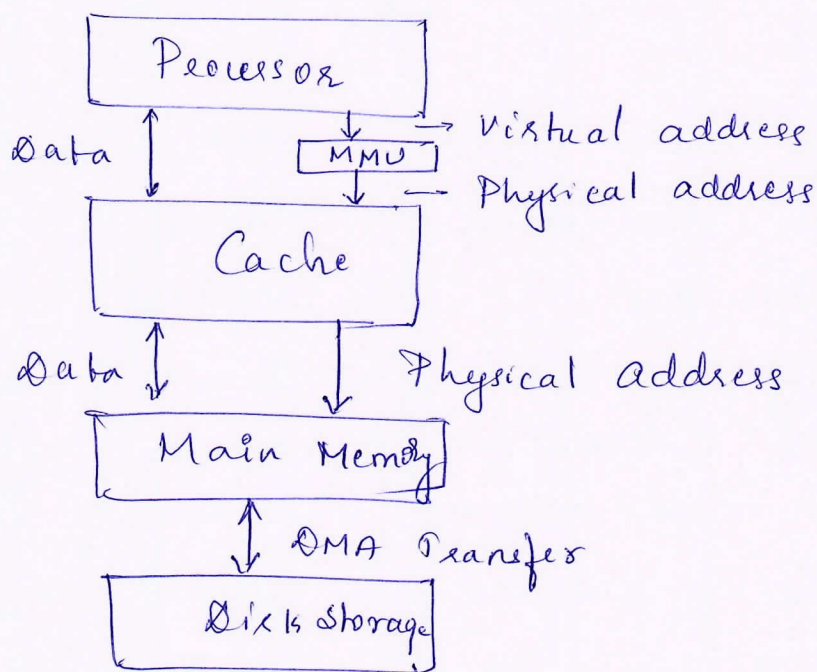 Processor
Data
Virtual address
MMU
Physical address
Cache
Data
Physical address
Main Memory
DMA Transfer
Disk Storage